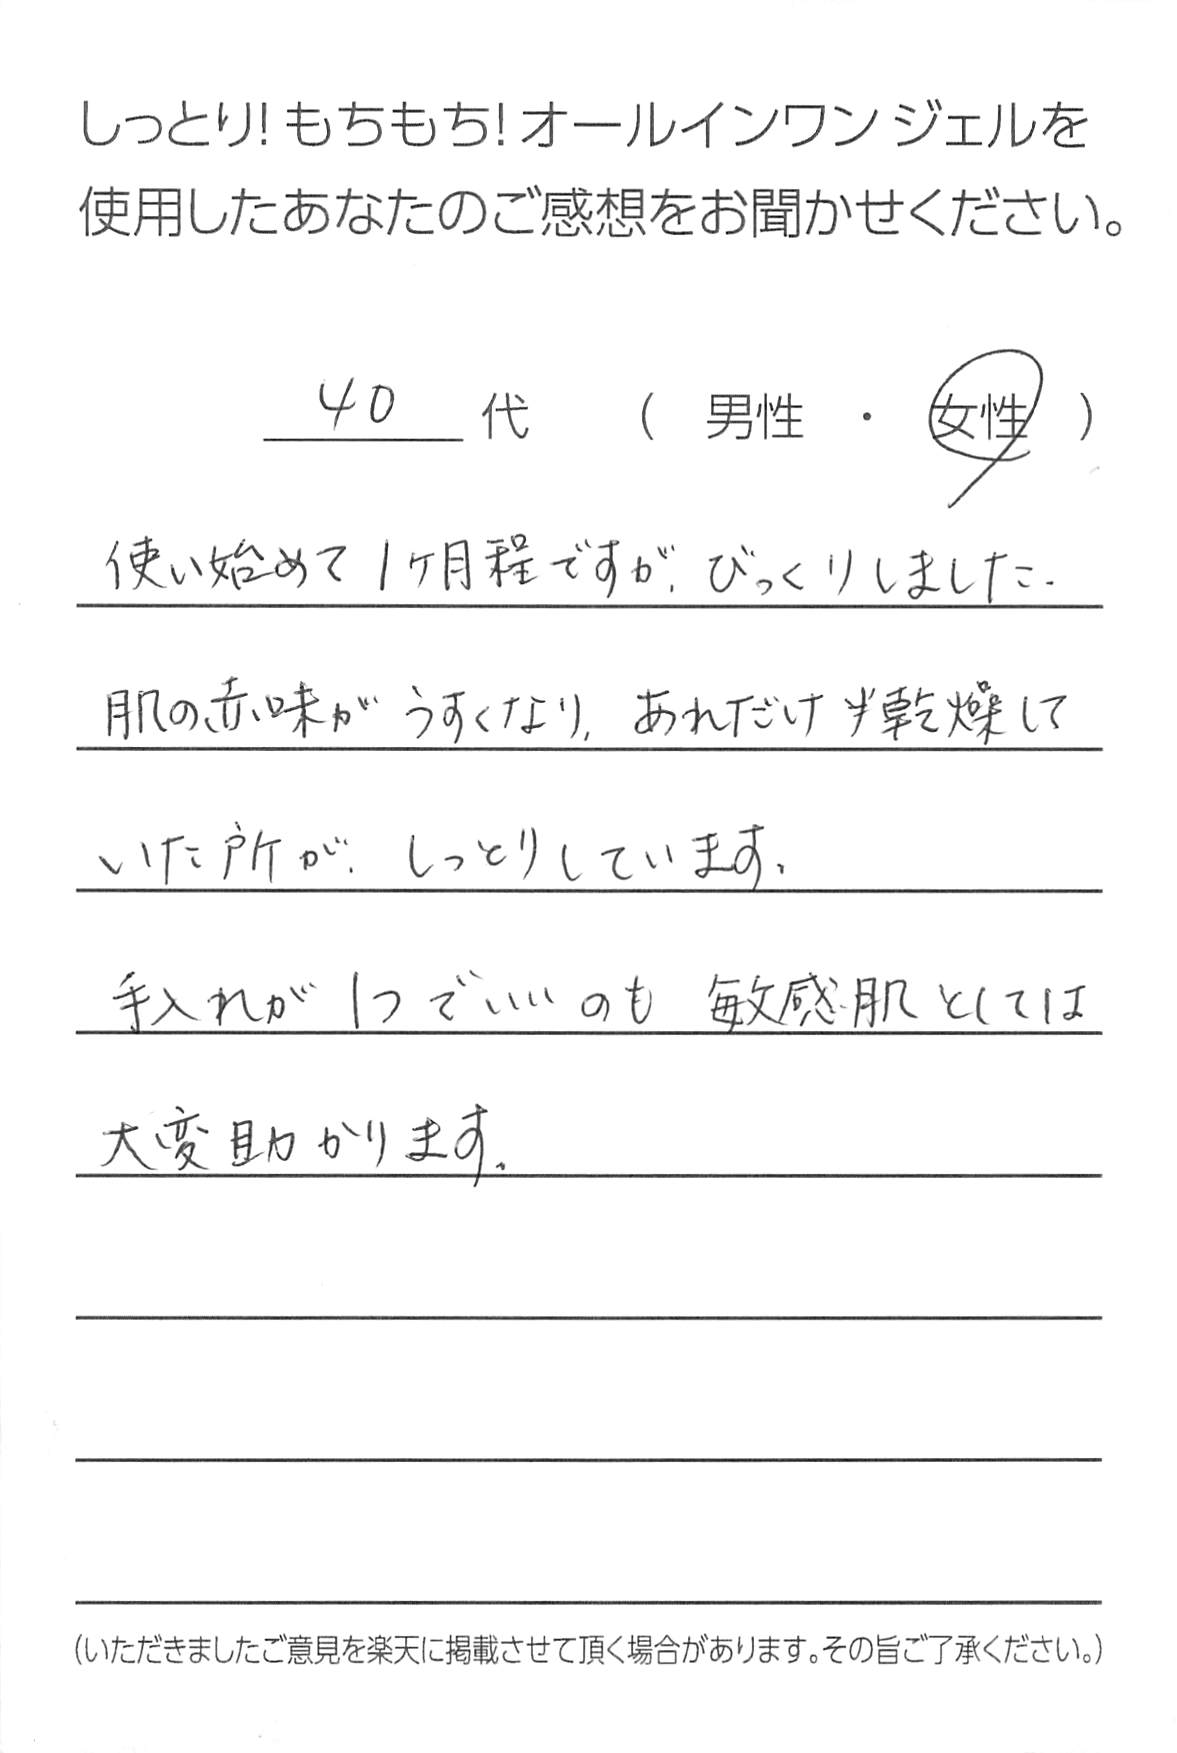 しっとり! もちもち! オールインワン ジェルを
使用したあなたのご感想をお聞かせください。
40 代 ( 男性 ・ 女性 )
使い始めて1ヶ月程ですが、びっくりしました.
肌の赤味が うすくなり、あれだけ半乾燥して
いた所が、しっとりしています。
手入れが 1つでいいのも 敏感肌としては
大変助かります。
(いただきましたご意見を楽天に掲載させて頂く場合があります。その旨ご了承ください。)